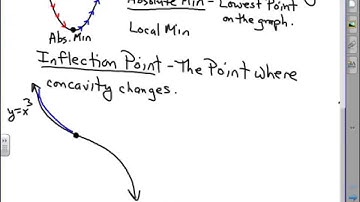 Absolute Min - Lowest Point
on the graph.
Abs. Min
Local Min
Inflection Point - The Point where
concavity changes.
y=x³